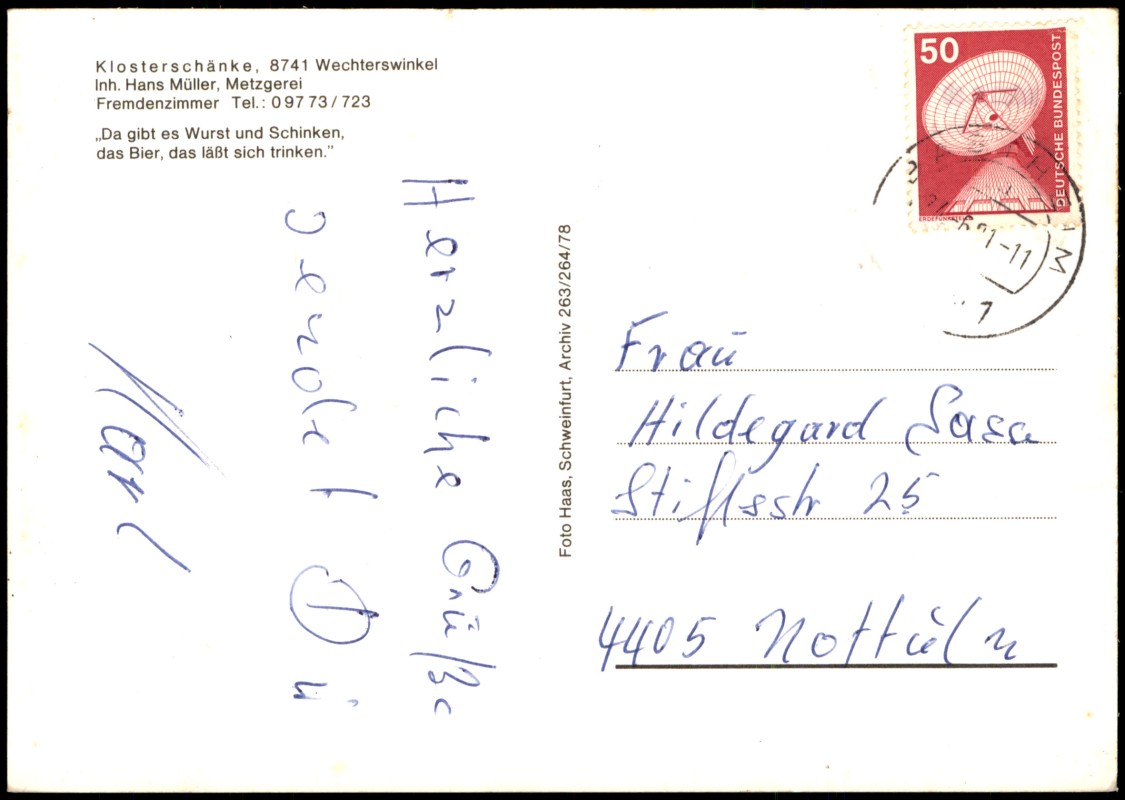 Klosterschänke, 8741 Wechterswinkel
Inh. Hans Müller, Metzgerei
Fremdenzimmer Tel.: 09773/723
„Da gibt es Wurst und Schinken,
das Bier, das läßt sich trinken.”
Herzliche Grüße
Karl
Foto Haas, Schweinfurt, Archiv 263/264/78
50
DEUTSCHE BUNDESPOST
ERDEFUNKSTELLE
Frau
Hildegard
Stiftsstr 25
4405 Nottuln